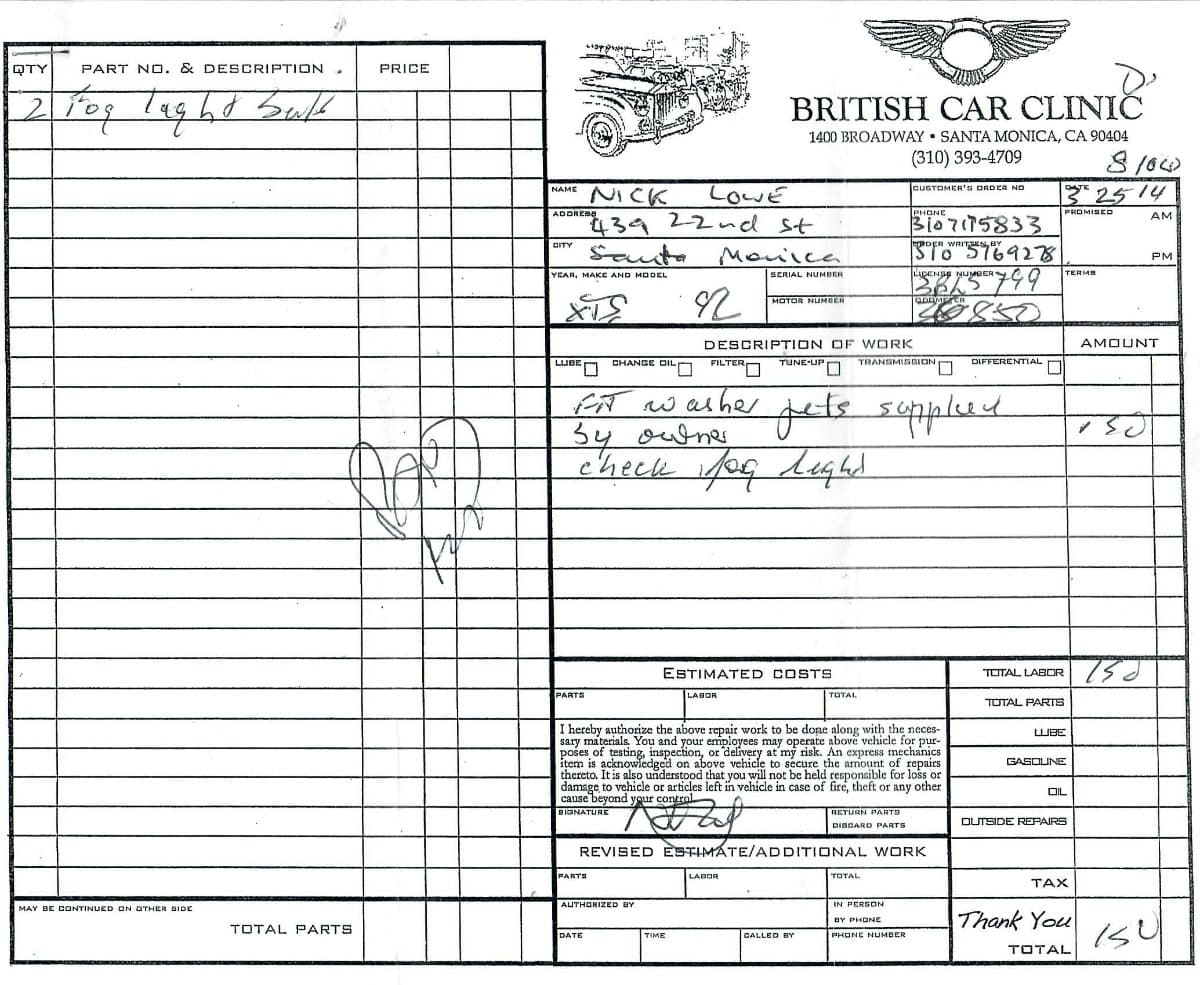 QTY PART NO. & DESCRIPTION PRICE
2 Fog light bulb
MAY BE CONTINUED ON OTHER SIDE
TOTAL PARTS
BRITISH CAR CLINIC
1400 BROADWAY • SANTA MONICA, CA 90404
(310) 393-4709
NAME NICK LOWE CUSTOMER'S ORDER NO DATE 3 25 14
ADDRESS 439 22nd St PHONE 3107175833 PROMISED AM
CITY Santa Monica ORDER WRITTEN BY 310 5769278 PM
YEAR, MAKE AND MODEL SERIAL NUMBER LICENSE NUMBER TERMS
XJS 92 MOTOR NUMBER ODOMETER
DESCRIPTION OF WORK AMOUNT
LUBE CHANGE OIL FILTER TUNE-UP TRANSMISSION DIFFERENTIAL
FIT washer jets supplied
by owner 150
check fog light
Paid
ESTIMATED COSTS TOTAL LABOR 150
PARTS LABOR TOTAL TOTAL PARTS
I hereby authorize the above repair work to be done along with the neces-
sary materials. You and your employees may operate above vehicle for pur-
poses of testing, inspection, or delivery at my risk. An express mechanics
item is acknowledged on above vehicle to secure the amount of repairs
thereto. It is also understood that you will not be held responsible for loss or
damage to vehicle or articles left in vehicle in case of fire, theft or any other
cause beyond your control.
LUBE
GASOLINE
OIL
SIGNATURE RETURN PARTS
DISCARD PARTS
OUTSIDE REPAIRS
REVISED ESTIMATE/ADDITIONAL WORK
PARTS LABOR TOTAL TAX
AUTHORIZED BY IN PERSON
BY PHONE
DATE TIME CALLED BY PHONE NUMBER
Thank You
TOTAL 150